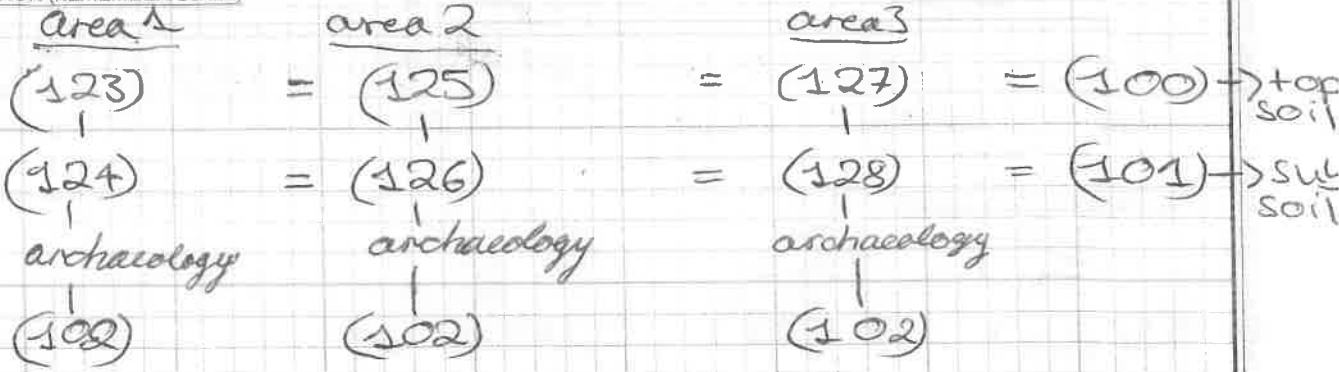 area 1 area 2 area3
(123) = (125) = (127) = (100) → top
soil
(124) = (126) = (128) = (101) → sub
soil
archaeology archaeology archaeology
(102) (102) (102)